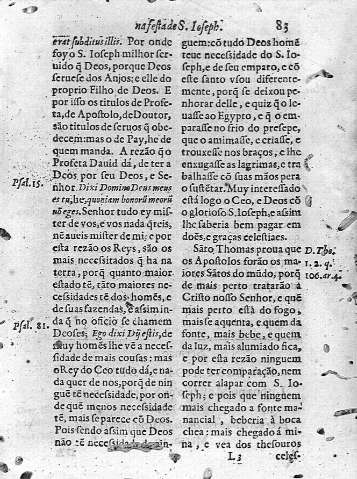 na festa de S. Ioseph. 83
erat subditus illis. Por onde
foy o S. Ioseph milhor ser-
uido q̃ Deos, porque Deos
seruese dos Anjos; e elle do
proprio Filho de Deos. E
por isso os titulos de Profe-
ta, de Apostolo, de Doutor,
são titulos de seruos q̃ obe-
decem: mas o de Pay, he de
quem manda. A rezão q̃ o
Profeta Dauid dá, de ter a
Deos por seu Deos, e Se-
Psal. 15.
nhor. Dixi Domino Deus meus
es tu, he, quoniam bonorũ meorũ
nõ eges. Senhor tudo ey mis-
ter de vos, e vos nada q̃reis,
nẽ aueis mister de mi; e por
esta rezão os Reys, são os
mais necessitados q̃ ha na
terra, porq̃ quanto maior
estado tẽ, tãto maiores ne-
cessidades tẽ dos homẽs, e
de suas fazendas, e assim in-
Psal. 81.
da q̃ no officio se chamem
Deoses, Ego dixi Dij estis, de
muy homẽs lhe vẽ a neces-
sidade de mais cousas: mas
o Rey do Ceo tudo dá, e na-
da quer de nos, porq̃ de nin
guẽ tẽ necessidade, por on-
de quẽ menos necessidade
tẽ, mais se parece cõ Deos.
Pois sendo assim que Deos
não tẽ necessidade de nin-
guem: cõ tudo Deos homẽ
teue necessidade do S. Io-
seph, e de seu emparo, e cõ
este santo vsou diferente-
mente, porq̃ se deixou pe-
nhorar delle, e quiz q̃ o le-
uasse ao Egypto, e q̃ o em-
parasse no frio do presepe,
que o amimasse, e criasse, e
trouxesse nos braços, e lhe
enxugasse as lagrimas, e tra
balhasse cõ suas mãos pera
o sustẽtar. Muy interessado
está logo o Ceo, e Deos cõ
o glorioso S. Ioseph, e assim
lhe saberia bem pagar em
doẽs, e graças celestiaes.
Sãto Thomas proua que
D. Tho.
os Apostolos forão os ma-
1. 2. q.
iores Sãtos do mũdo, porq̃
106. ar. 4.
de mais perto tratarão a
Cristo nosso Senhor, e quẽ
mais perto está do fogo,
mais se aquenta, e quem da
fonte, mais bebe, e quem
da luz, mais alumiado fica,
e por esta rezão ninguem
pode ter comparação, nem
correr alapar com S. Io-
seph; e pois que ninguem
mais chegado a fonte ma-
nancial, beberia à boca
chea: mais chegado á mi-
na, e vea dos thesouros
L3 celes-